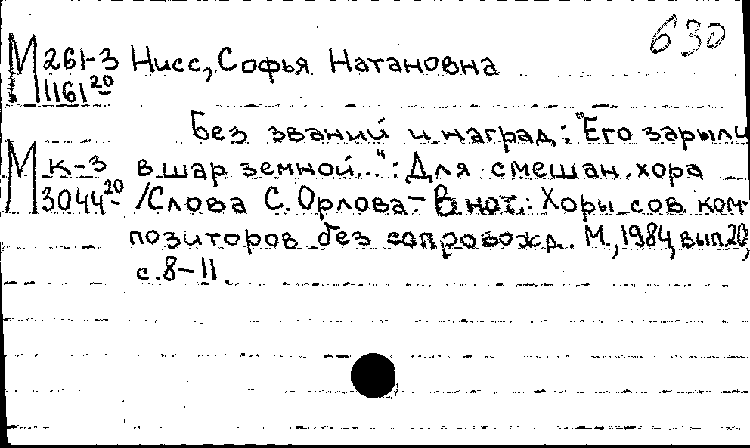 630
М 261-3 Нисс, Софья Натановна
1161 20
Без званий и наград: "Его зарыли
М к-3 в шар земной...": Для смешан. хора
3044 20 /Слова С. Орлова.- В нот.: Хоры сов ком-
позиторов без сопровожд. М., 1984, вып.20,
с. 8-11.